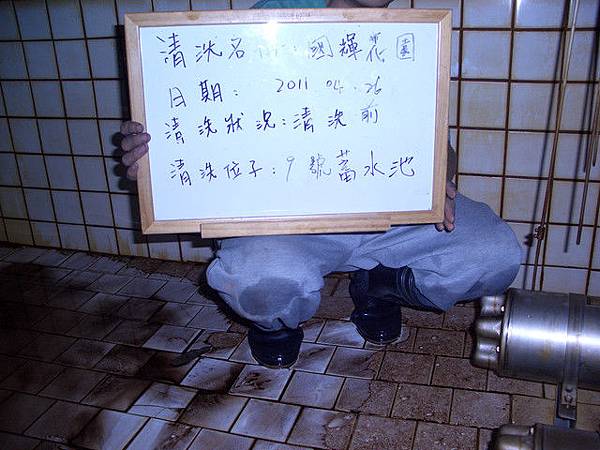 清洗名 : 國輝花園
日期: 2011 04. 26
清洗狀況:清洗前
清洗位子:9號蓄水池